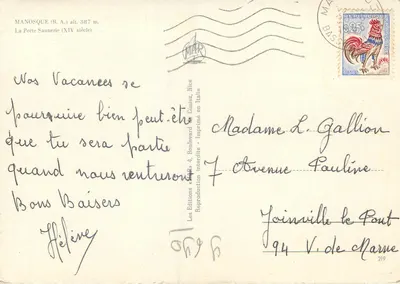 MANOSQUE (B. A.) alt. 387 m.
La Porte Saunerie (XIVe siècle)
Nos Vacances se
poursuivre bien peut-être
que tu sera partie
quand nous rentrerons
Bons Baisers
Hélène
MAR
Reproduction interdite - Imprimé en Italie
Madame L. Gallion
7 Avenue Pauline
Joinville le Pont
94 V. de Marne